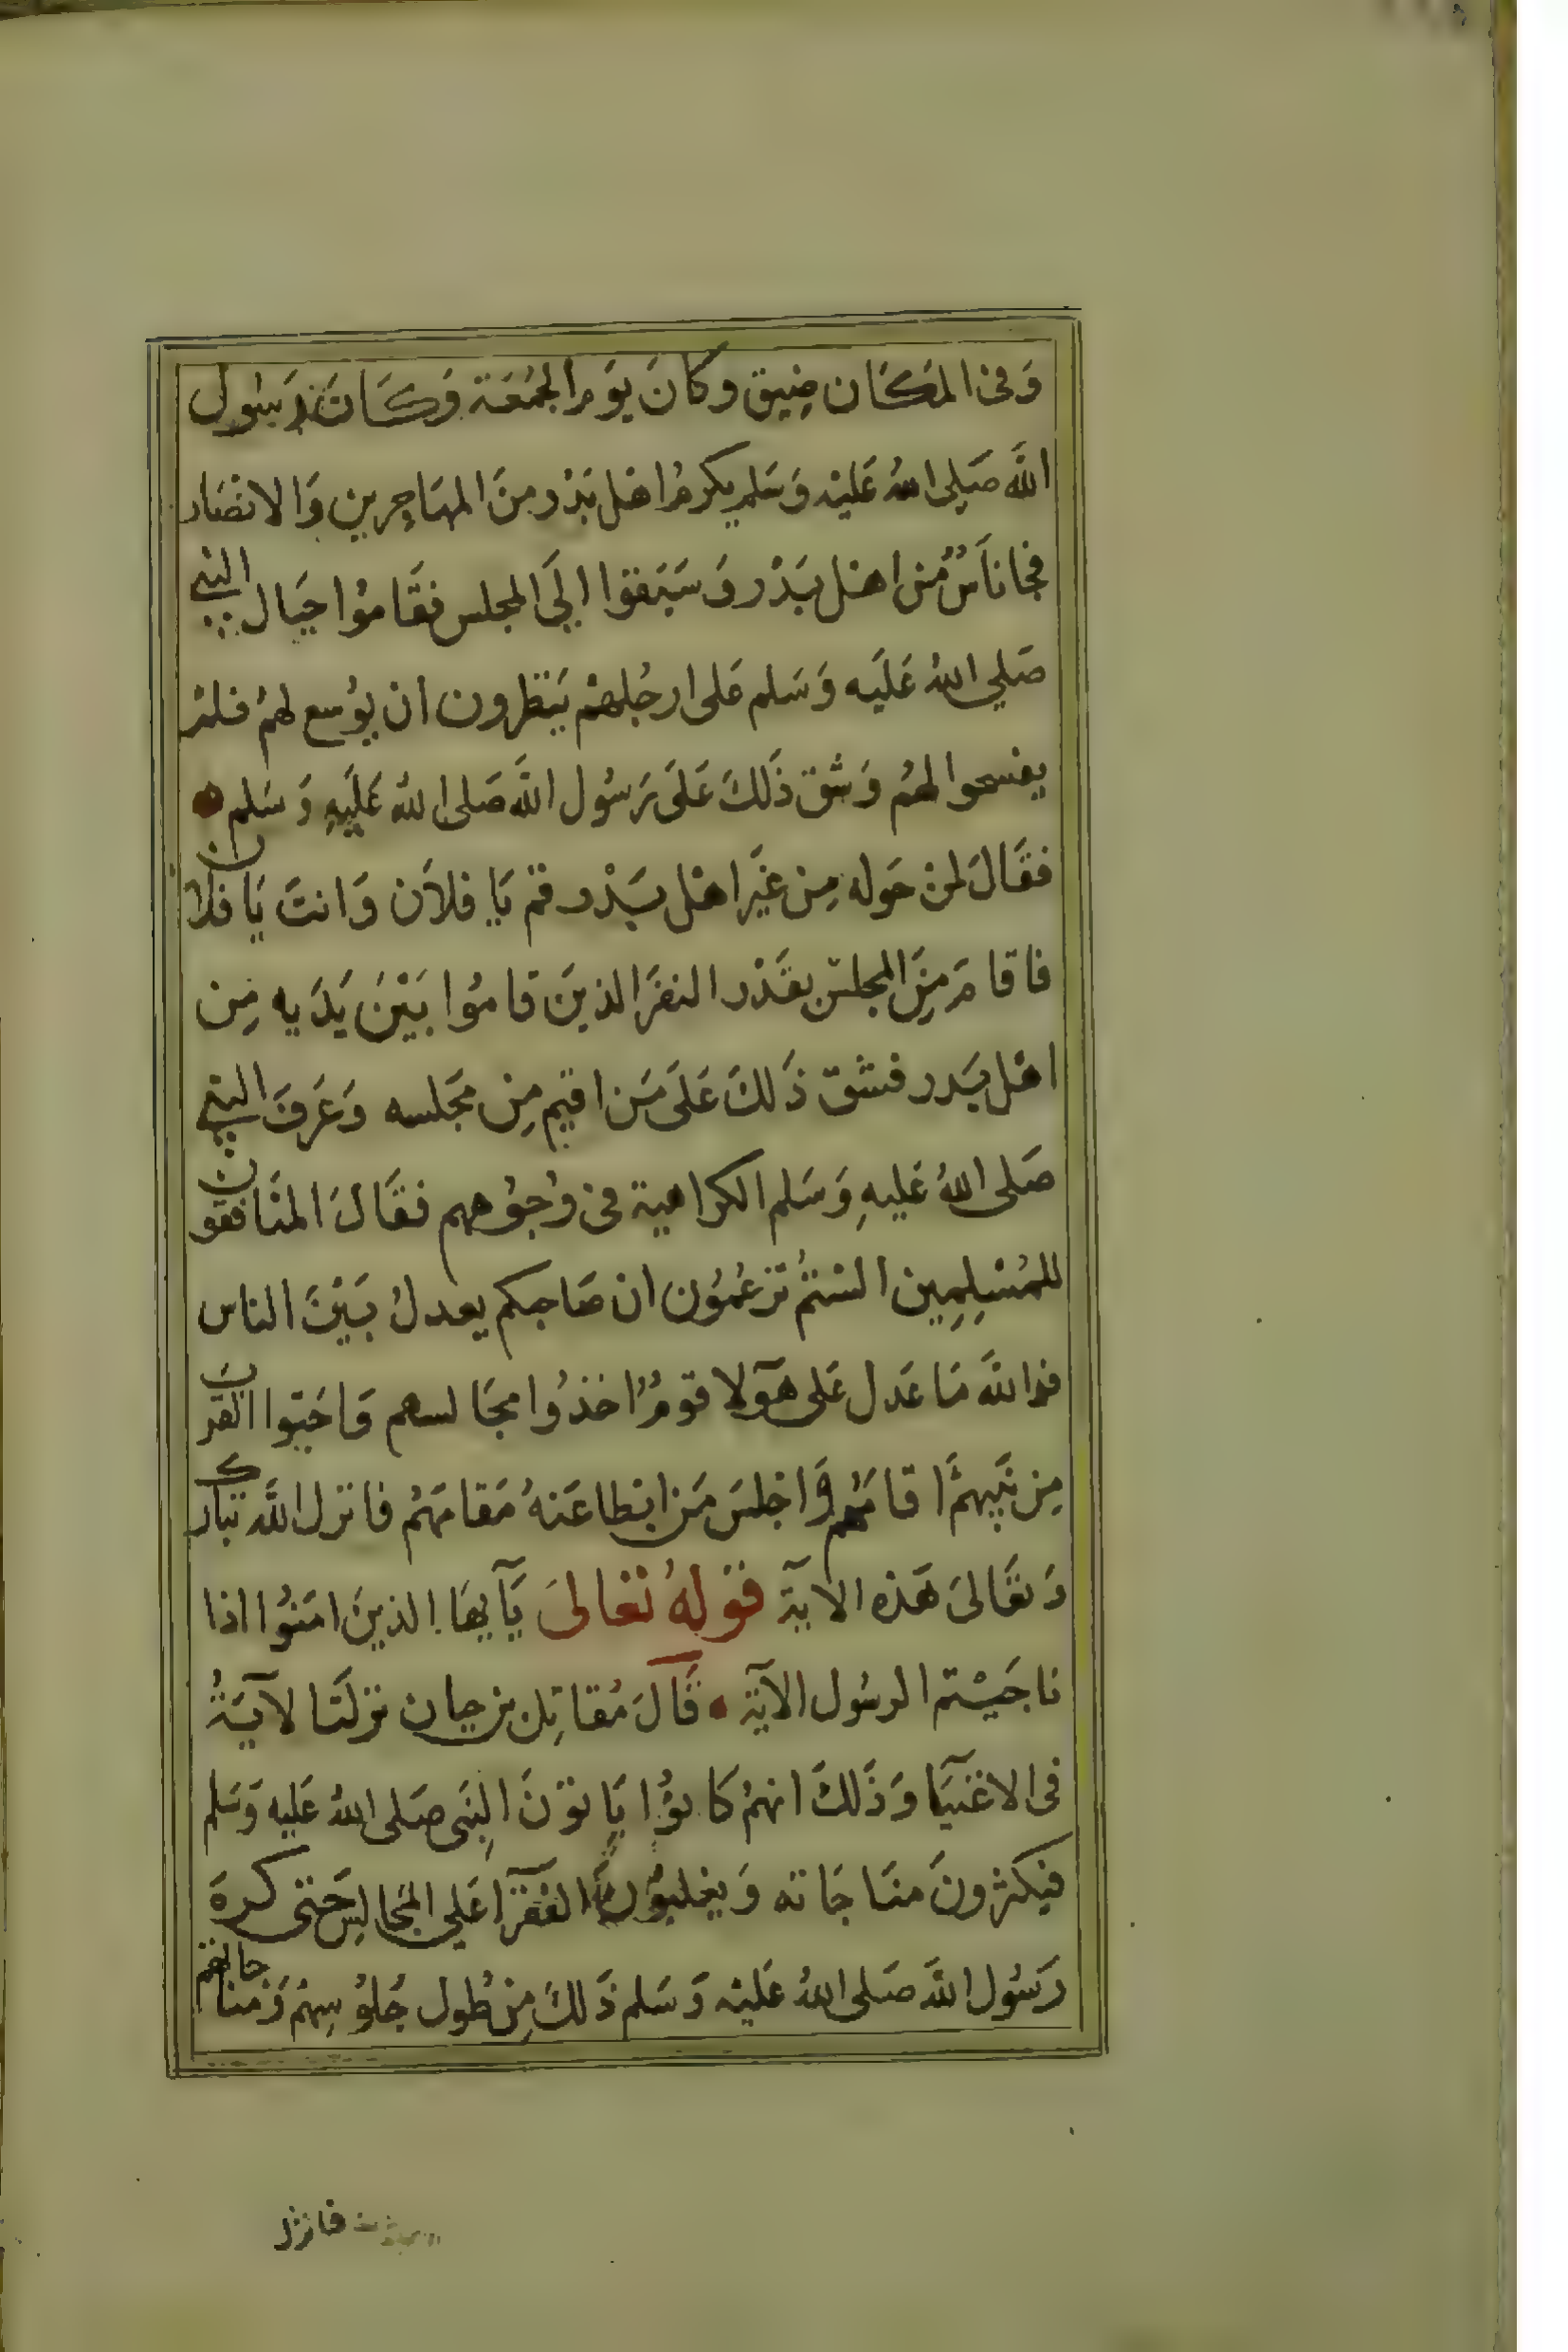 وَفى المَكَان ضِيق وكانَ يوَم الجُمُعَة وَكَانَ رَسُول
اللَّه صَلى اللهُ عَليْه وَسَلم يكرمُ اهْل بَدْر منَ المهَاجِرين وَالانصَار
فجا نَاسٌ مُن اهْل بَدْر وَسَبَقوا الىَ المجلس فقَامُوا حيَال النبي
صَلي اللهُ عَلَيه وَسَلم عَلى ارجُلهمْ يَنتظرون ان يوُسع لهمُ فلمْ
يفسحوا لهمُ وَشق ذَلكَ عَلَى رَسُول اللَّه صَلى اللهُ عَلَيهِ وَسَلم
فقَالَ لمنْ حَوله مِن غَيَر اهْل بَدْر قمْ يَا فلاَن وَانتَ يَا فلان
فاقامَ مِنَ المجلسْ بقَدْر النفَر الذينَ قامُوا بَيْنَ يَدَيه مِن
اهْل بَدر فشق ذَلكَ عَلَى مَن اقيم مِن مَجلسه وَعَرفَ النبي
صَلى اللهُ عَليهِ وَسَلم الكراهية فى وُجوُههم فقَالَ المنَافقون
للمُسْلِمِين الستمُ تزعُمُون ان صَاحبكم يعدلُ بَيْنَ الناس
فوالله مَا عَدل عَلى هَؤلا قومٌ اخذُوا مجَالسهم وَاحَبوا القربَ
مِن نَبيهمَّ اقامَهُم وَاجْلسَ مَن ابْطا عَنهُ مَقامَهُم فانزل اللَّه تبارك
وَتعَالىَ هَذه الآية قوَلهُ تعَالىَ يَآيهَا الذينَ امَنُوا اذا
ناجَيْتم الرسُول الآيَة قَالَ مُقاتِل بن حيان نزلَت الآيَةُ
فى الاغنيَآ وَذَلكَ انهمُ كَانوُا يَاتوْنَ النِبَى صَلى اللهُ عَليه وَسَلم
فيَكثرُونَ منَاجَاته وَيغلبوُنَ الفقَرَآ عَلي المجَالسِ حَتى كرهَ
رَسُول اللَّه صَلى اللهُ عَليْه وَسَلم ذَلكَ مِنْ طُول جُلوُسِهمْ وَمنَاجاتهم
فانزل